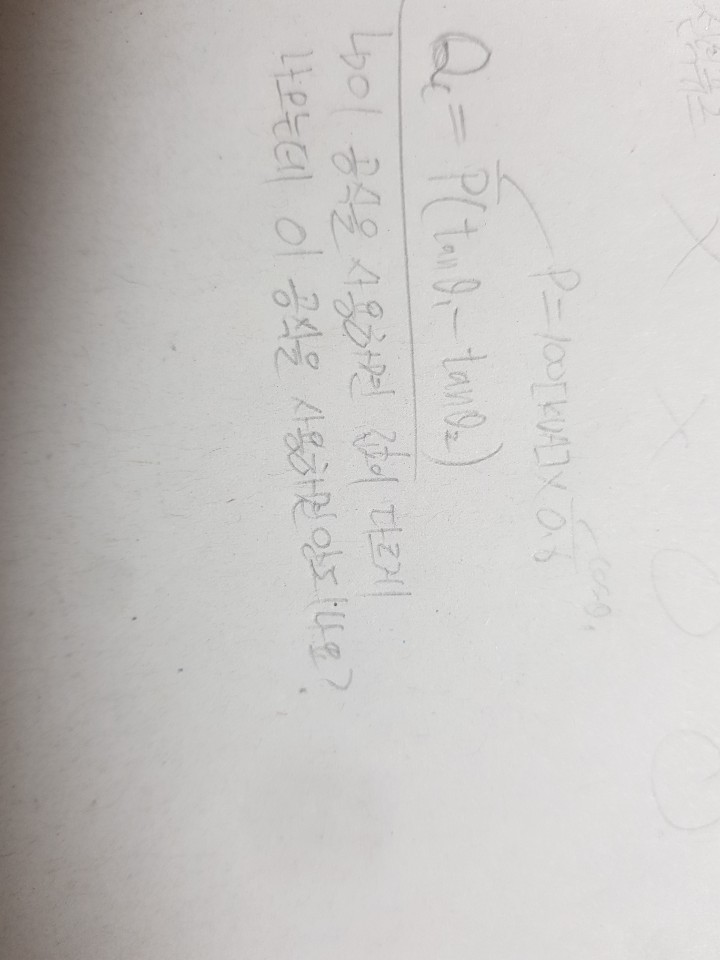 P=100[kVA]×0.8
cosθ₁
Qc = P(tanθ₁-tanθ₂)
이 공식을 사용하면 값이 다르게
나오는데 이 공식을 사용하면 안되나요?